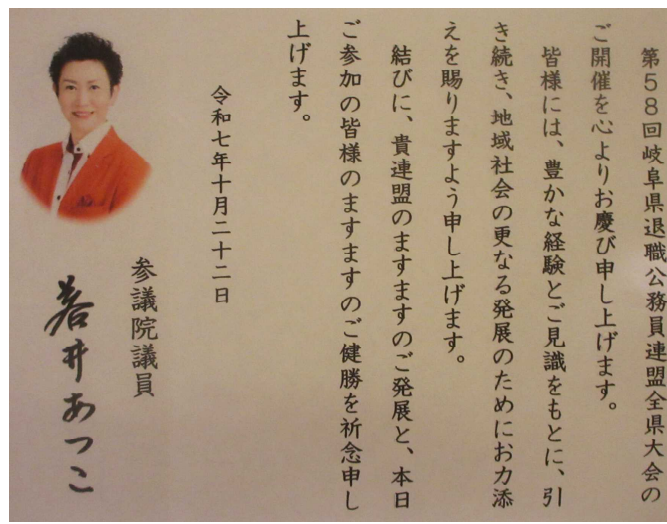 第58回岐阜県退職公務員連盟全県大会の
ご開催を心よりお慶び申し上げます。
皆様には、豊かな経験とご見識をもとに、引
き続き、地域社会の更なる発展のためにお力添
えを賜りますよう申し上げます。
結びに、貴連盟のますますのご発展と、本日
ご参加の皆様のますますのご健勝を祈念申し
上げます。
令和七年十月二十二日
参議院議員
若井あつこ